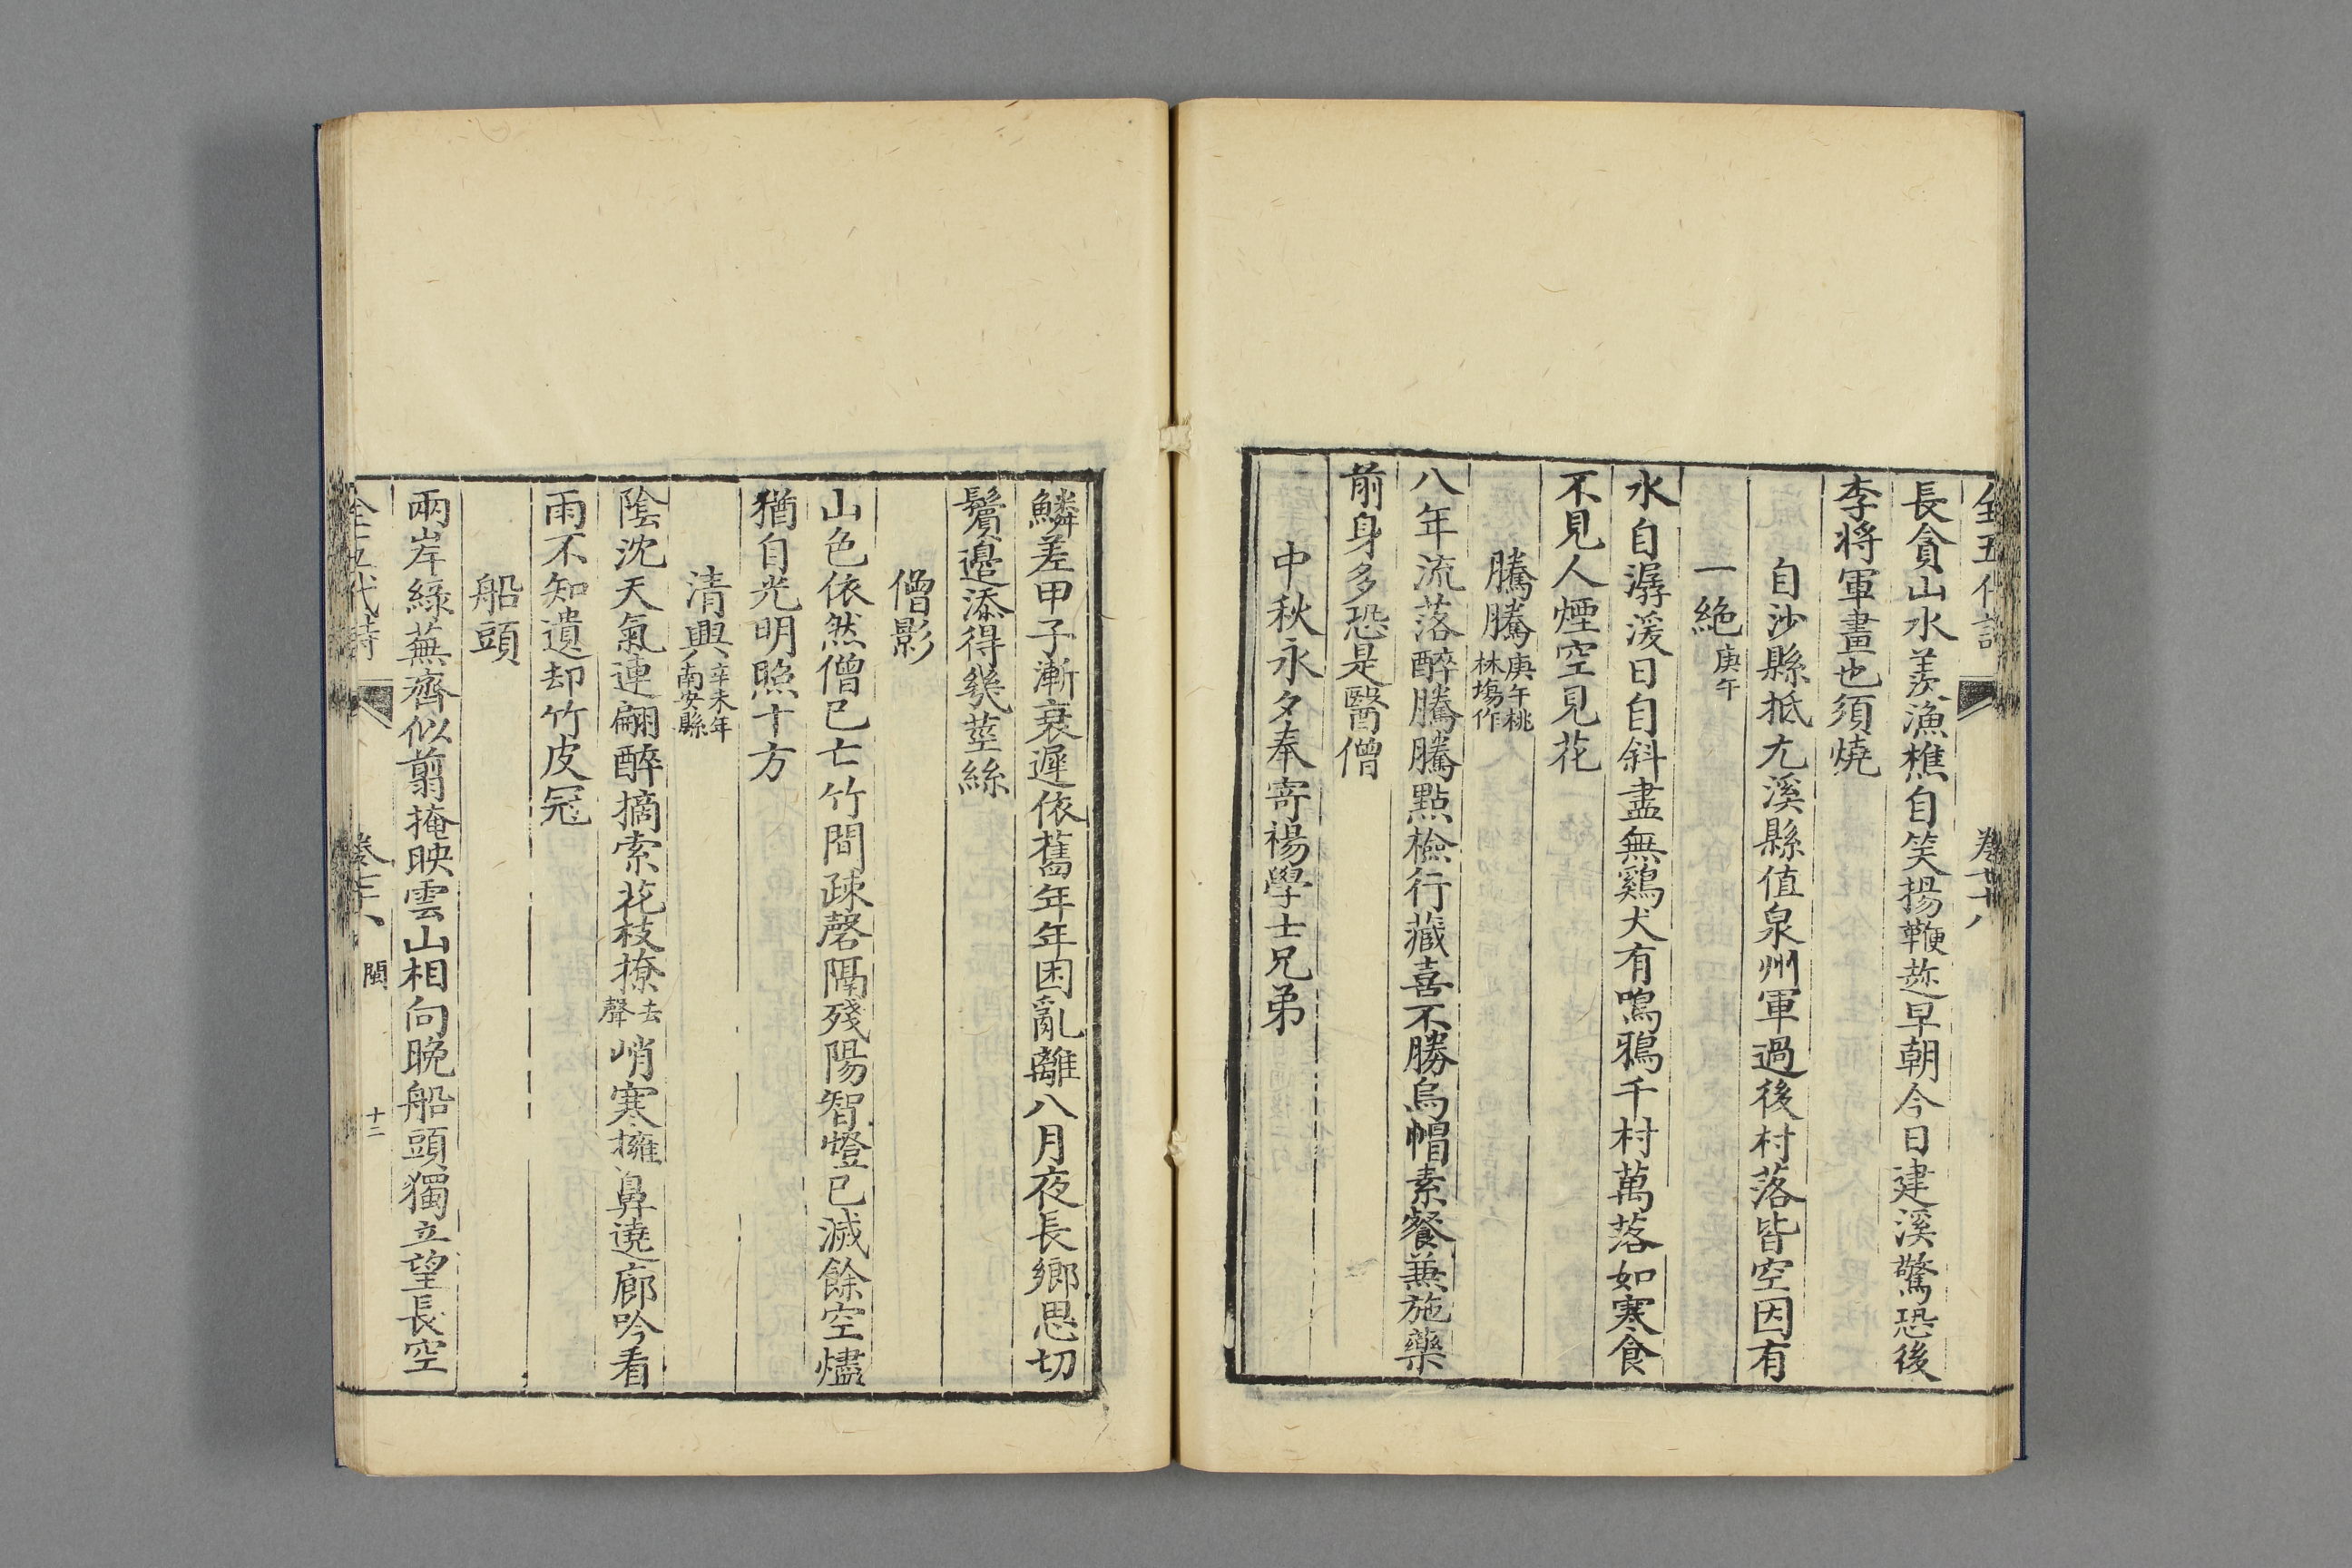 全五代詩
卷七十八
長貪山水羨漁樵自笑揚鞭趂早朝今日建溪驚恐後
李將軍畫也須燒
自沙縣抵尤溪縣值泉州軍過後村落皆空因有
一絶庚午
水自潺湲日自斜盡無鷄犬有鳴鴉千村萬落如寒食
不見人煙空見花
騰騰庚午桃林塲作
八年流落醉騰騰點檢行藏喜不勝烏帽素餐兼施藥
前身多恐是醫僧
中秋永夕奉寄楊學士兄弟
鱗差甲子漸衰遲依舊年年困亂離八月夜長鄉思切
鬢邉添得幾莖絲
僧影
山色依然僧已亡竹間疎磬隔殘陽智燈已滅餘空燼
猶自光明照十方
清興辛未年南安縣
陰沈天氣連翩醉摘索花枝撩去聲峭寒擁鼻遶廊吟看
雨不知遺却竹皮冠
船頭
兩岸綠蕪齊似翦掩映雲山相向晚船頭獨立望長空
全五代詩
閩
十二